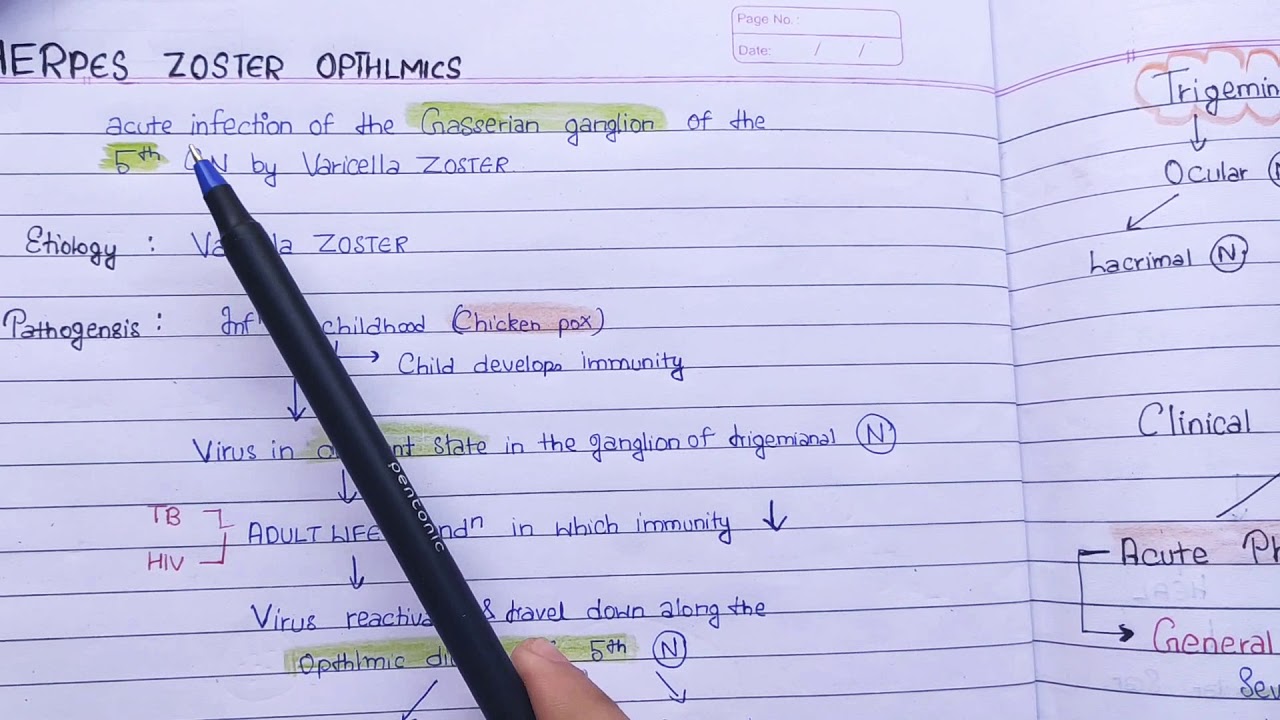 HERPES ZOSTER OPTHLMICS
Page No.:
Date: / /
acute infection of the Gasserian ganglion of the
5th CN by Varicella ZOSTER
Etiology : ZOSTER
Pathogensis : childhood (Chicken pox)
→ Child develops immunity
↓
Virus in state in the ganglion of trigemianal N
↓
TB
HIV
ADULT LIFE in which immunity ↓
↓
Virus & travel down along the
Opthlmic 5th N
pentonic
Trigemin
↓
Ocular
Lacrimal N
Clinical
Acute Ph
General
Sev